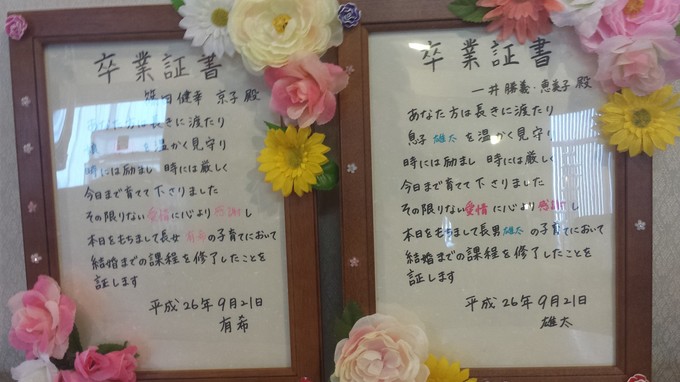 卒業証書
田健幸 京子殿
あなた方は長きに渡たり
を温かく見守り
時には励まし 時には厳しく
今日まで育てて下さりました
その限りない愛情に心より感謝し
本日をもちまして長女 有希の子育てにおいて
結婚までの課程を修了したことを
証します
平成26年9月21日
有希
卒業証書
一井勝義・恵美子殿
あなた方は長きに渡たり
息子 雄太 を温かく見守り
時には励まし 時には厳しく
今日まで育てて下さりました
その限りない愛情に心より感謝し
本日をもちまして長男 雄太 の子育てにおいて
結婚までの課程を修了したことを
証します
平成26年9月21日
雄太